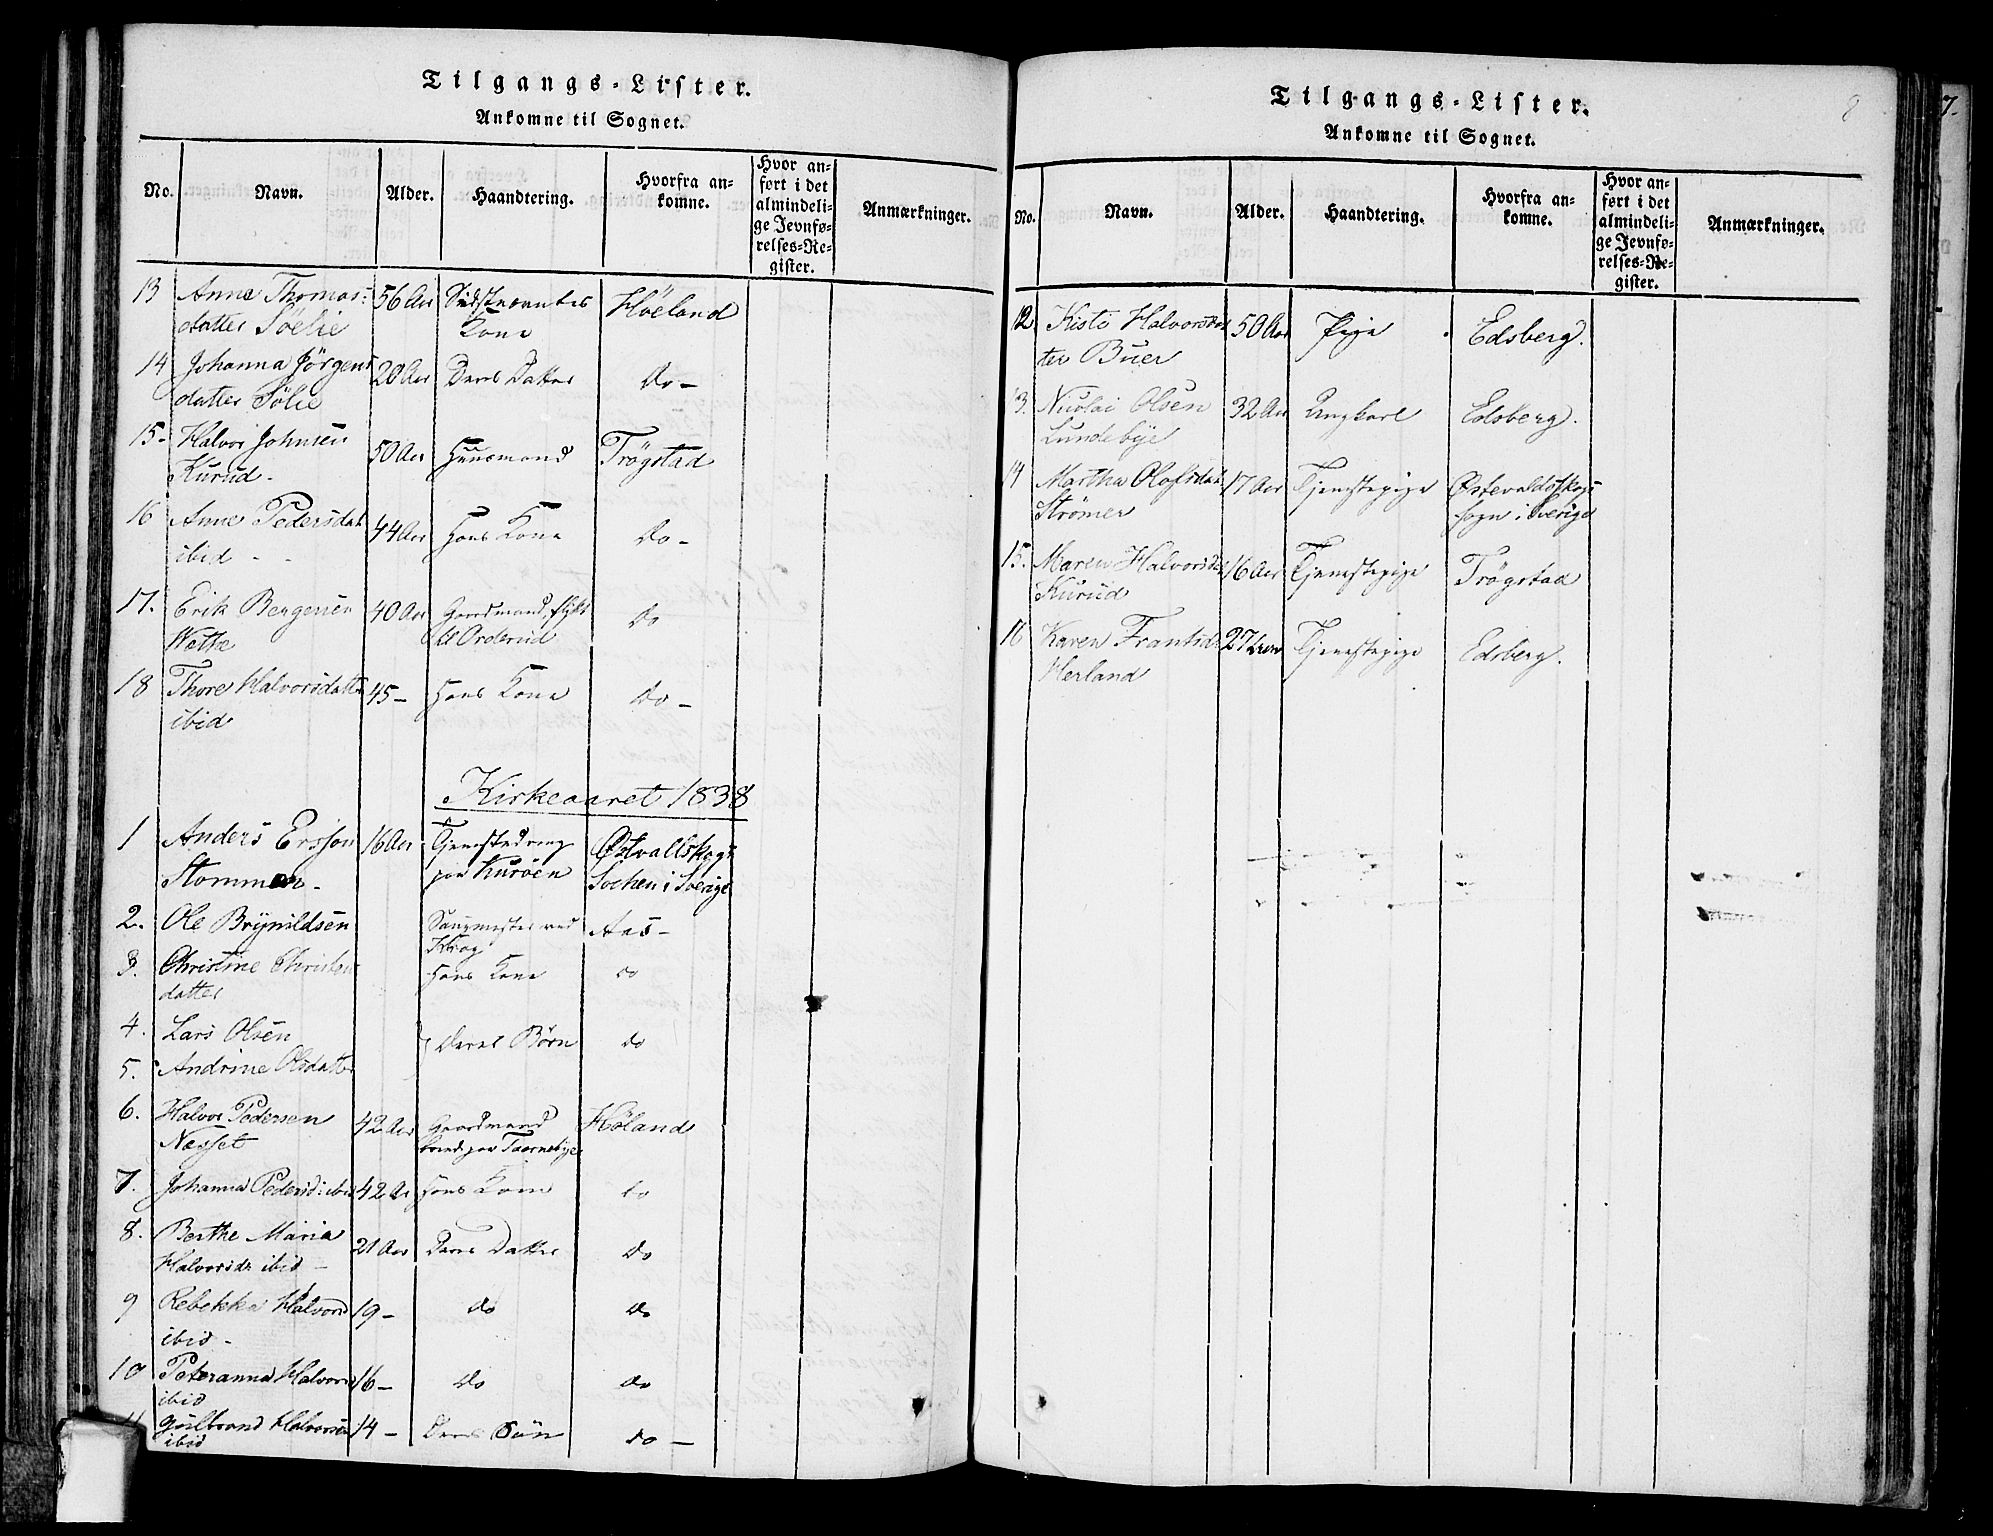 Tilgangs-Lister.
Ankomne til Sognet.
No. Navn. Alder. Haandtering. Hvorfra ankomne. Hvor anført i det almindelige Jevnførelses-Register. Anmærkninger.
13 Anne Thomas: 56 Aar Kone Höeland
datter Söelie
14 Johanna Jörgens 20 Aar Deres Datter Do –
datter Sölie
15 – Halvor Johnsen 50 Aar Huusmand Trögstad
Kurud –
16 Anne Pedersdat 44 Aar Hans Kone Do –
ibid –
17. Erik Bergersen 40 Aar Gaardmand, flyt Do
Wette til Orderud
18 Thore Halvorsdatter 45 – Hans Kone Do –
ibid
Kirkeaaret 1838
1 Anders Ersson 16 Aar Tjenestedreng Østvallskogs
Stommen – paa Kuröen Sochen i Sverige
2. Ole Brynildsen Saugmester ved Aas –
Krog
3. Christine Christen Hans Kone do
datter
4. Lars Olsen Deres Børn do
5. Andrine Olsdatter
6. Halvor Pedersen 42 Aar Gaardmand Höland
Nesset
7. Johanna Pedersd: ibid 42 Aar Hans Kone do
8. Berthe Maria 21 Aar Deres Datter do
Halvorsdr ibid –
9 Rebekka Halvorsd 19 – do do
ibid –
10 Peteranna Halvorsd 16 – do do
ibid
11 Gulbrand Halvorsen 14 – Deres Sön do –
ibid
Tilgangs-Lister.
Ankomne til Sognet.
8
7.
No. Navn. Alder. Haandtering. Hvorfra ankomne. Hvor anført i det almindelige Jevnførelses-Register. Anmærkninger.
12 Kisti Halvorsdat 50 Aar Pige Edsberg.
ter Buer
13. Nicolai Olsen 32 Aar Ungkarl Edsberg.
Lundebye
14 Martha Olofsdat: 17 Aar Tjenestepige Østevaldsskogs
Strömer Sogn i Sverige
15. Maren Halvorsdr 16 Aar Tjenestepige Trögstad
Kurud
16 Karen Frantsdr 27 Tjenestepige Edsberg.
Herland